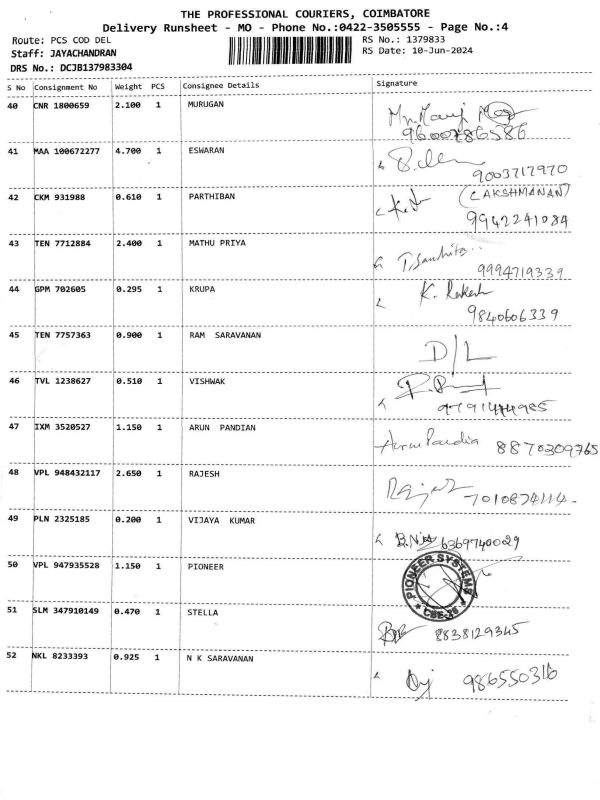 THE PROFESSIONAL COURIERS, COIMBATORE
Delivery Runsheet - MO - Phone No.:0422-3505555 - Page No.:4
Route: PCS COD DEL
RS No.: 1379833
Staff: JAYACHANDRAN
RS Date: 10-Jun-2024
DRS No.: DCJB137983304
S No Consignment No Weight PCS Consignee Details Signature
40 CNR 1800659 2.100 1 MURUGAN
9600786586
41 MAA 100672277 4.700 1 ESWARAN
9003717970
42 CKM 931988 0.610 1 PARTHIBAN
(LAKSHMANAN)
9942241084
43 TEN 7712884 2.400 1 MATHU PRIYA
9994719339
44 GPM 702605 0.295 1 KRUPA
K. Rakesh
9840606339
45 TEN 7757363 0.900 1 RAM SARAVANAN
D/L
46 TVL 1238627 0.510 1 VISHWAK
47 IXM 3520527 1.150 1 ARUN PANDIAN
8870309765
48 VPL 948432117 2.650 1 RAJESH
7010874114
49 PLN 2325185 0.200 1 VIJAYA KUMAR
6369740029
50 VPL 947935528 1.150 1 PIONEER
PIONEER SYSTEMS
51 SLM 347910149 0.470 1 STELLA
8838129345
52 NKL 8233393 0.925 1 N K SARAVANAN
986550316